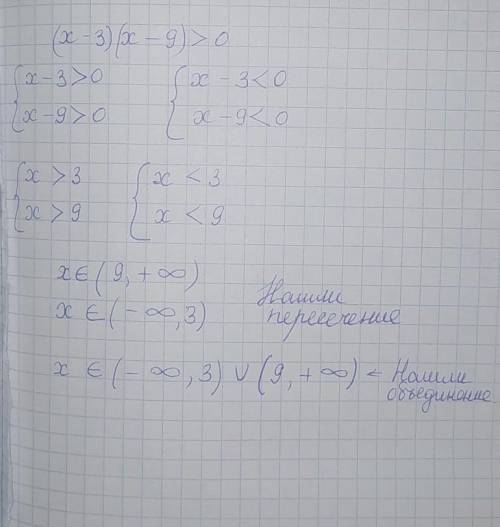 (x-3)(x-9)>0
{x-3>0 {x-3<0
{x-9>0 {x-9<0
{x>3 {x<3
{x>9 {x<9
x∈(9,+∞)
x∈(-∞,3)
Нашли
пересечение
x∈(-∞,3)∪(9,+∞) ← Нашли
объединение